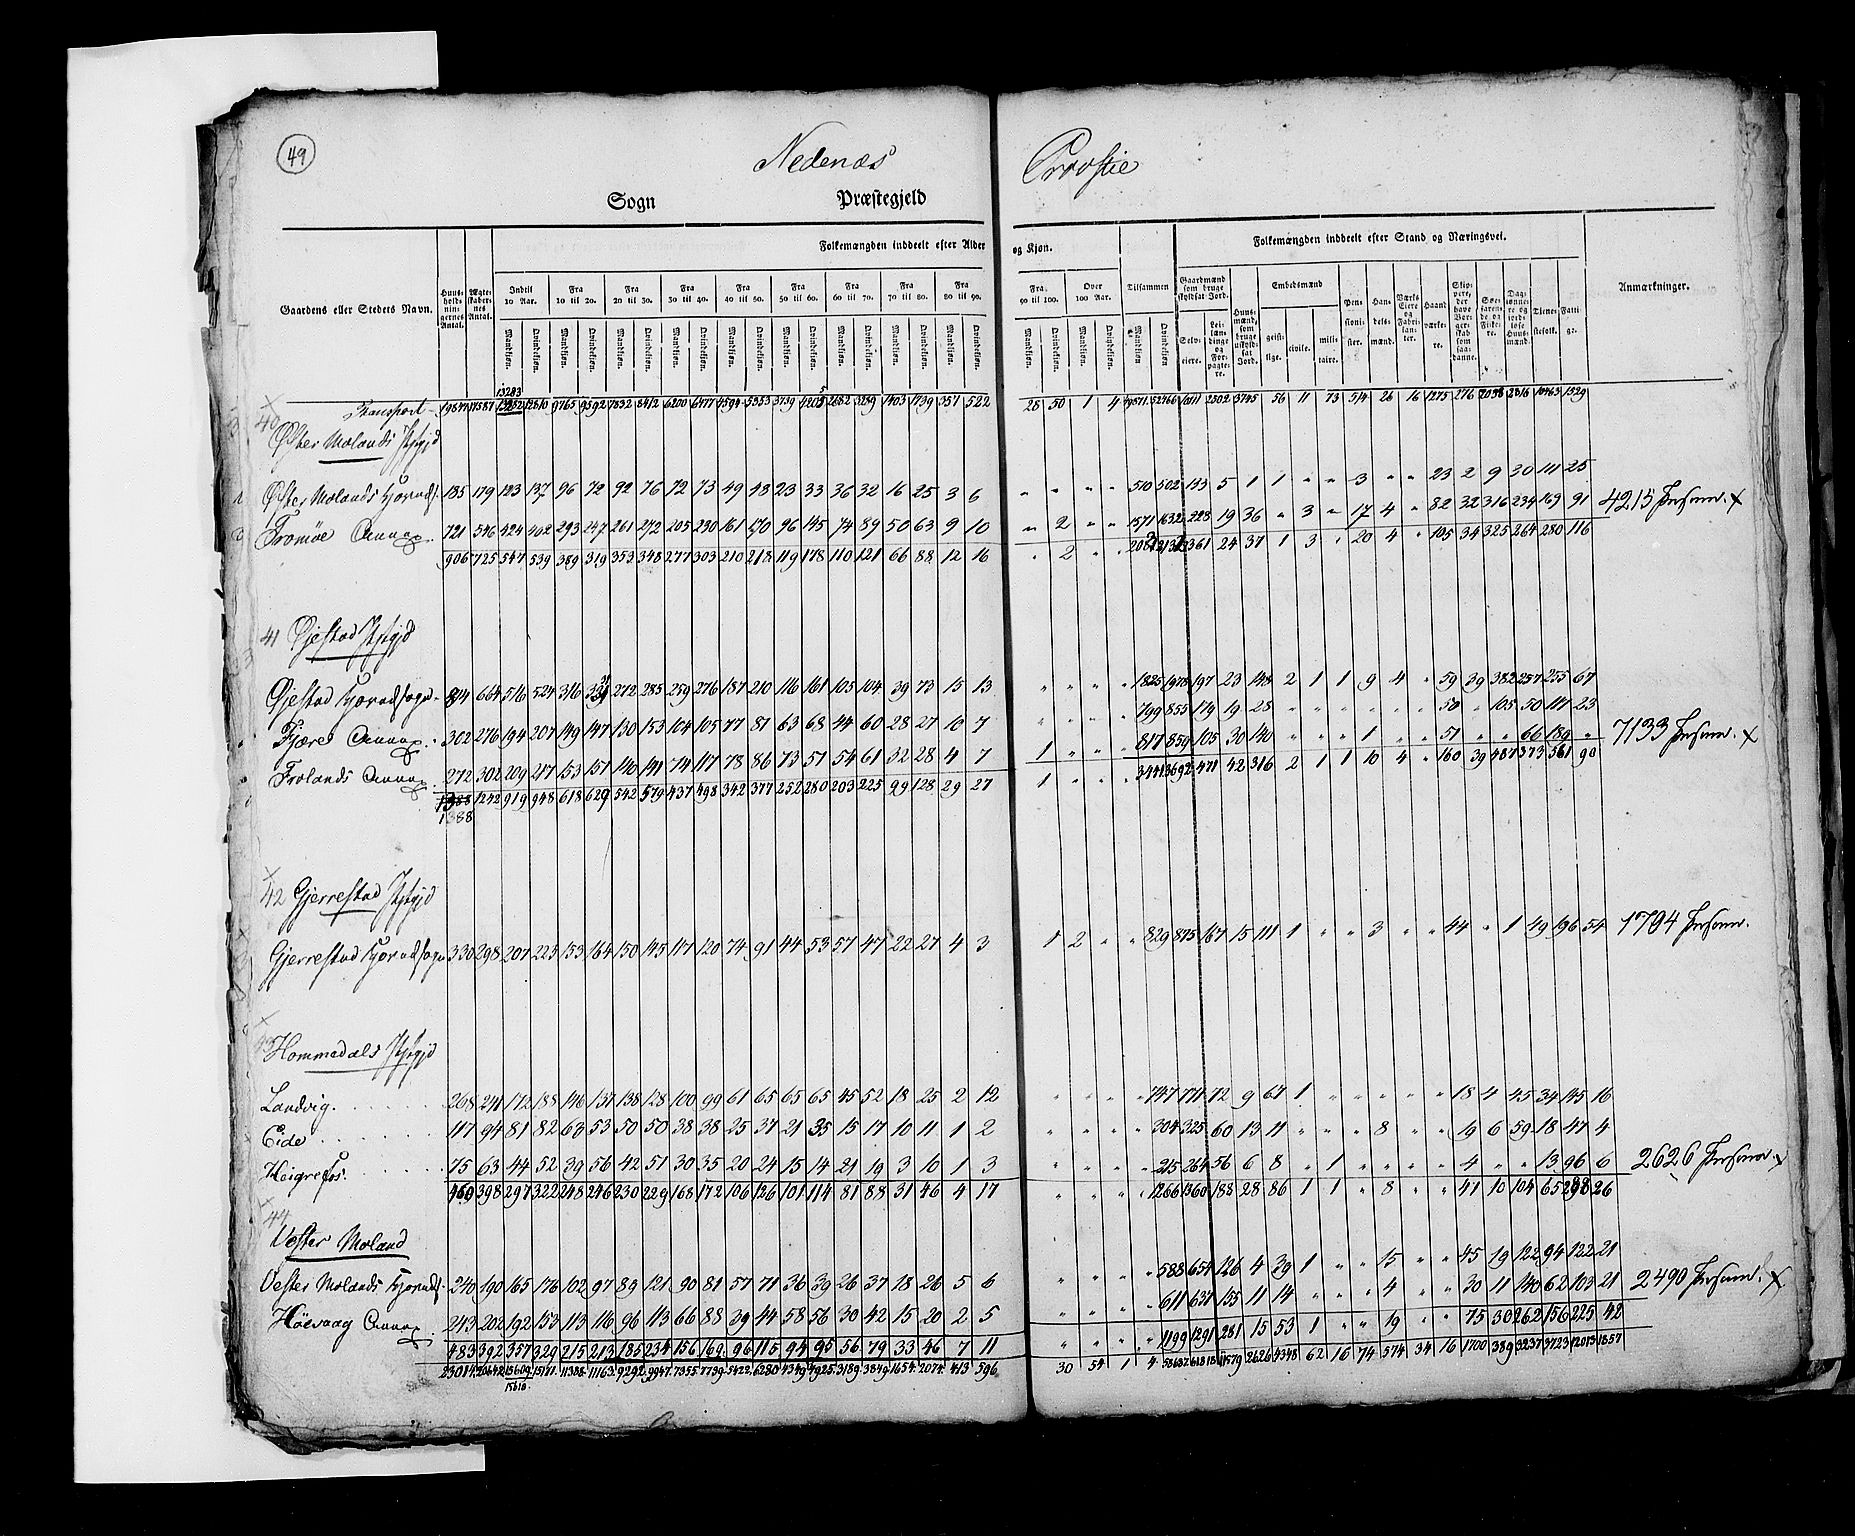 49
Nedenæs Provstie
Sogn Præstegjeld
Gaardens eller Stedets Navn. Huusholdningernes Antal. Ægteskabernes Antal. Folkemængden inddeelt efter Alder og Kjøn. Tilsammen Folkemængden inddeelt efter Stand og Næringsvei. Anmærkninger.
Indtil 10 Aar. Fra 10 til 20. Fra 20 til 30. Fra 30 til 40. Fra 40 til 50. Fra 50 til 60. Fra 60 til 70. Fra 70 til 80. Fra 80 til 90. Fra 90 til 100. Over 100 Aar.
Mandkjøn. Qvindekjøn.
Gaardmænd som bruge skyldsat Jord. Selveiere. Leilændinge og Forpagtere. Huusmænd, som bruge uskyldsat Jord. Embedsmænd geistlige. civile. militaire. Pensionister. Handelsmænd. Værks Eiere og Fabrikanter. Haandværkere. Skippere, der have Borgerskab som saadanne. Søefarende og Fiskere. Daglønnere og jordløse Huusmænd. Tjenestefolk. Fattige.
Transport
40
Øster Molands
Øster Molands 185 179 123 137 96 72 92 76 72 73 49 48 23 33 36 32 16 25 3 6 " " " " 510 502 133 5 1 1 " " 3 " " 23 2 9 30 111 25
Tromøe Annex. 721 546 424 402 293 247 261 272 205 230 161 170 96 145 74 89 50 63 9 10 " 2 " " 1571 1632 228 19 36 " 3 " 17 4 " 82 32 316 234 169 91 4215
906 725 547 539 389 319 353 348 277 303 210 218 119 178 110 121 66 88 12 16 " 2 " " 361 24 37 1 3 " 20 4 " 105 34 325 264 280 116
41 Øjestad
Øjestad 814 664 516 524 316 272 285 259 276 187 210 116 161 105 104 39 73 15 13 " " " " 1825 1978 197 23 148 2 1 1 9 4 " 59 39 382 257 255 67
Fjære Annex. 302 276 194 207 149 147 130 153 104 105 77 81 63 68 44 60 28 27 10 7 " " " " 799 855 179 19 28 " " " " " " 50 " 105 50 117 23
Frolands Annex 272 302 209 217 153 151 140 141 74 117 78 86 73 51 54 61 32 28 4 7 1 " " " 817 859 105 30 140 " " " 1 " " 51 " " 66 189 " 7133
1242 919 948 618 629 542 579 437 498 342 377 252 280 203 225 99 128 29 27 1 " " " 3441 3692 471 42 316 2 1 1 10 4 " 160 39 487 373 561 90
1388
42 Gjerrestad
Gjerrestad 330 298 207 225 153 164 150 145 117 120 74 91 44 53 57 47 22 27 4 3 1 2 " " 829 875 167 15 111 1 " " 3 " " 44 " 1 49 196 54 1794
43
Hommedals
Landvig. 268 241 172 188 146 137 138 128 100 99 61 65 65 65 45 52 18 25 2 12 " " " " 747 771 72 9 67 1 " " " " " 18 4 45 34 145 16
Eide 117 94 81 82 63 53 50 50 38 38 25 37 21 35 15 17 10 11 1 2 " " " " 304 325 60 13 11 " " " 8 " " 19 6 59 18 47 4
Heigrefos. 75 63 44 52 39 56 42 51 30 35 20 24 15 14 21 19 3 10 1 3 " " " " 215 264 56 6 8 " 1 " " " " 4 " " 13 96 6 2626
460 398 297 322 248 246 230 229 168 172 106 126 101 114 81 88 31 46 4 17 " " " " 1266 1360 188 28 86 1 1 " 8 " " 41 10 104 65 288 26
44
Vester Moland
Vester Molands 240 190 165 176 102 97 89 121 90 81 57 71 36 39 26 37 18 26 5 6 " " " " 588 654 126 4 39 1 " " 15 " " 45 19 122 94 122 21
Høevaag Annex. 243 202 192 153 113 116 96 113 66 88 39 44 58 56 30 42 15 20 2 5 " " " " 611 637 155 11 14 " " " 4 " " 30 11 140 62 103 21 2490
483 392 357 329 215 213 185 234 156 169 96 115 94 95 56 79 33 46 7 11 " " " " 1199 1291 281 15 53 1 " " 19 " " 75 30 262 156 225 42
23084 20642 15609 15171 11388 11163 9292 9947 7355 7739 5422 6280 4349 4925 3189 3849 1654 2074 413 596 30 54 1 4 58687 61818 11579 2626 4348 62 16 74 574 34 16 1700 389 3237 3723 12013 1857
15616